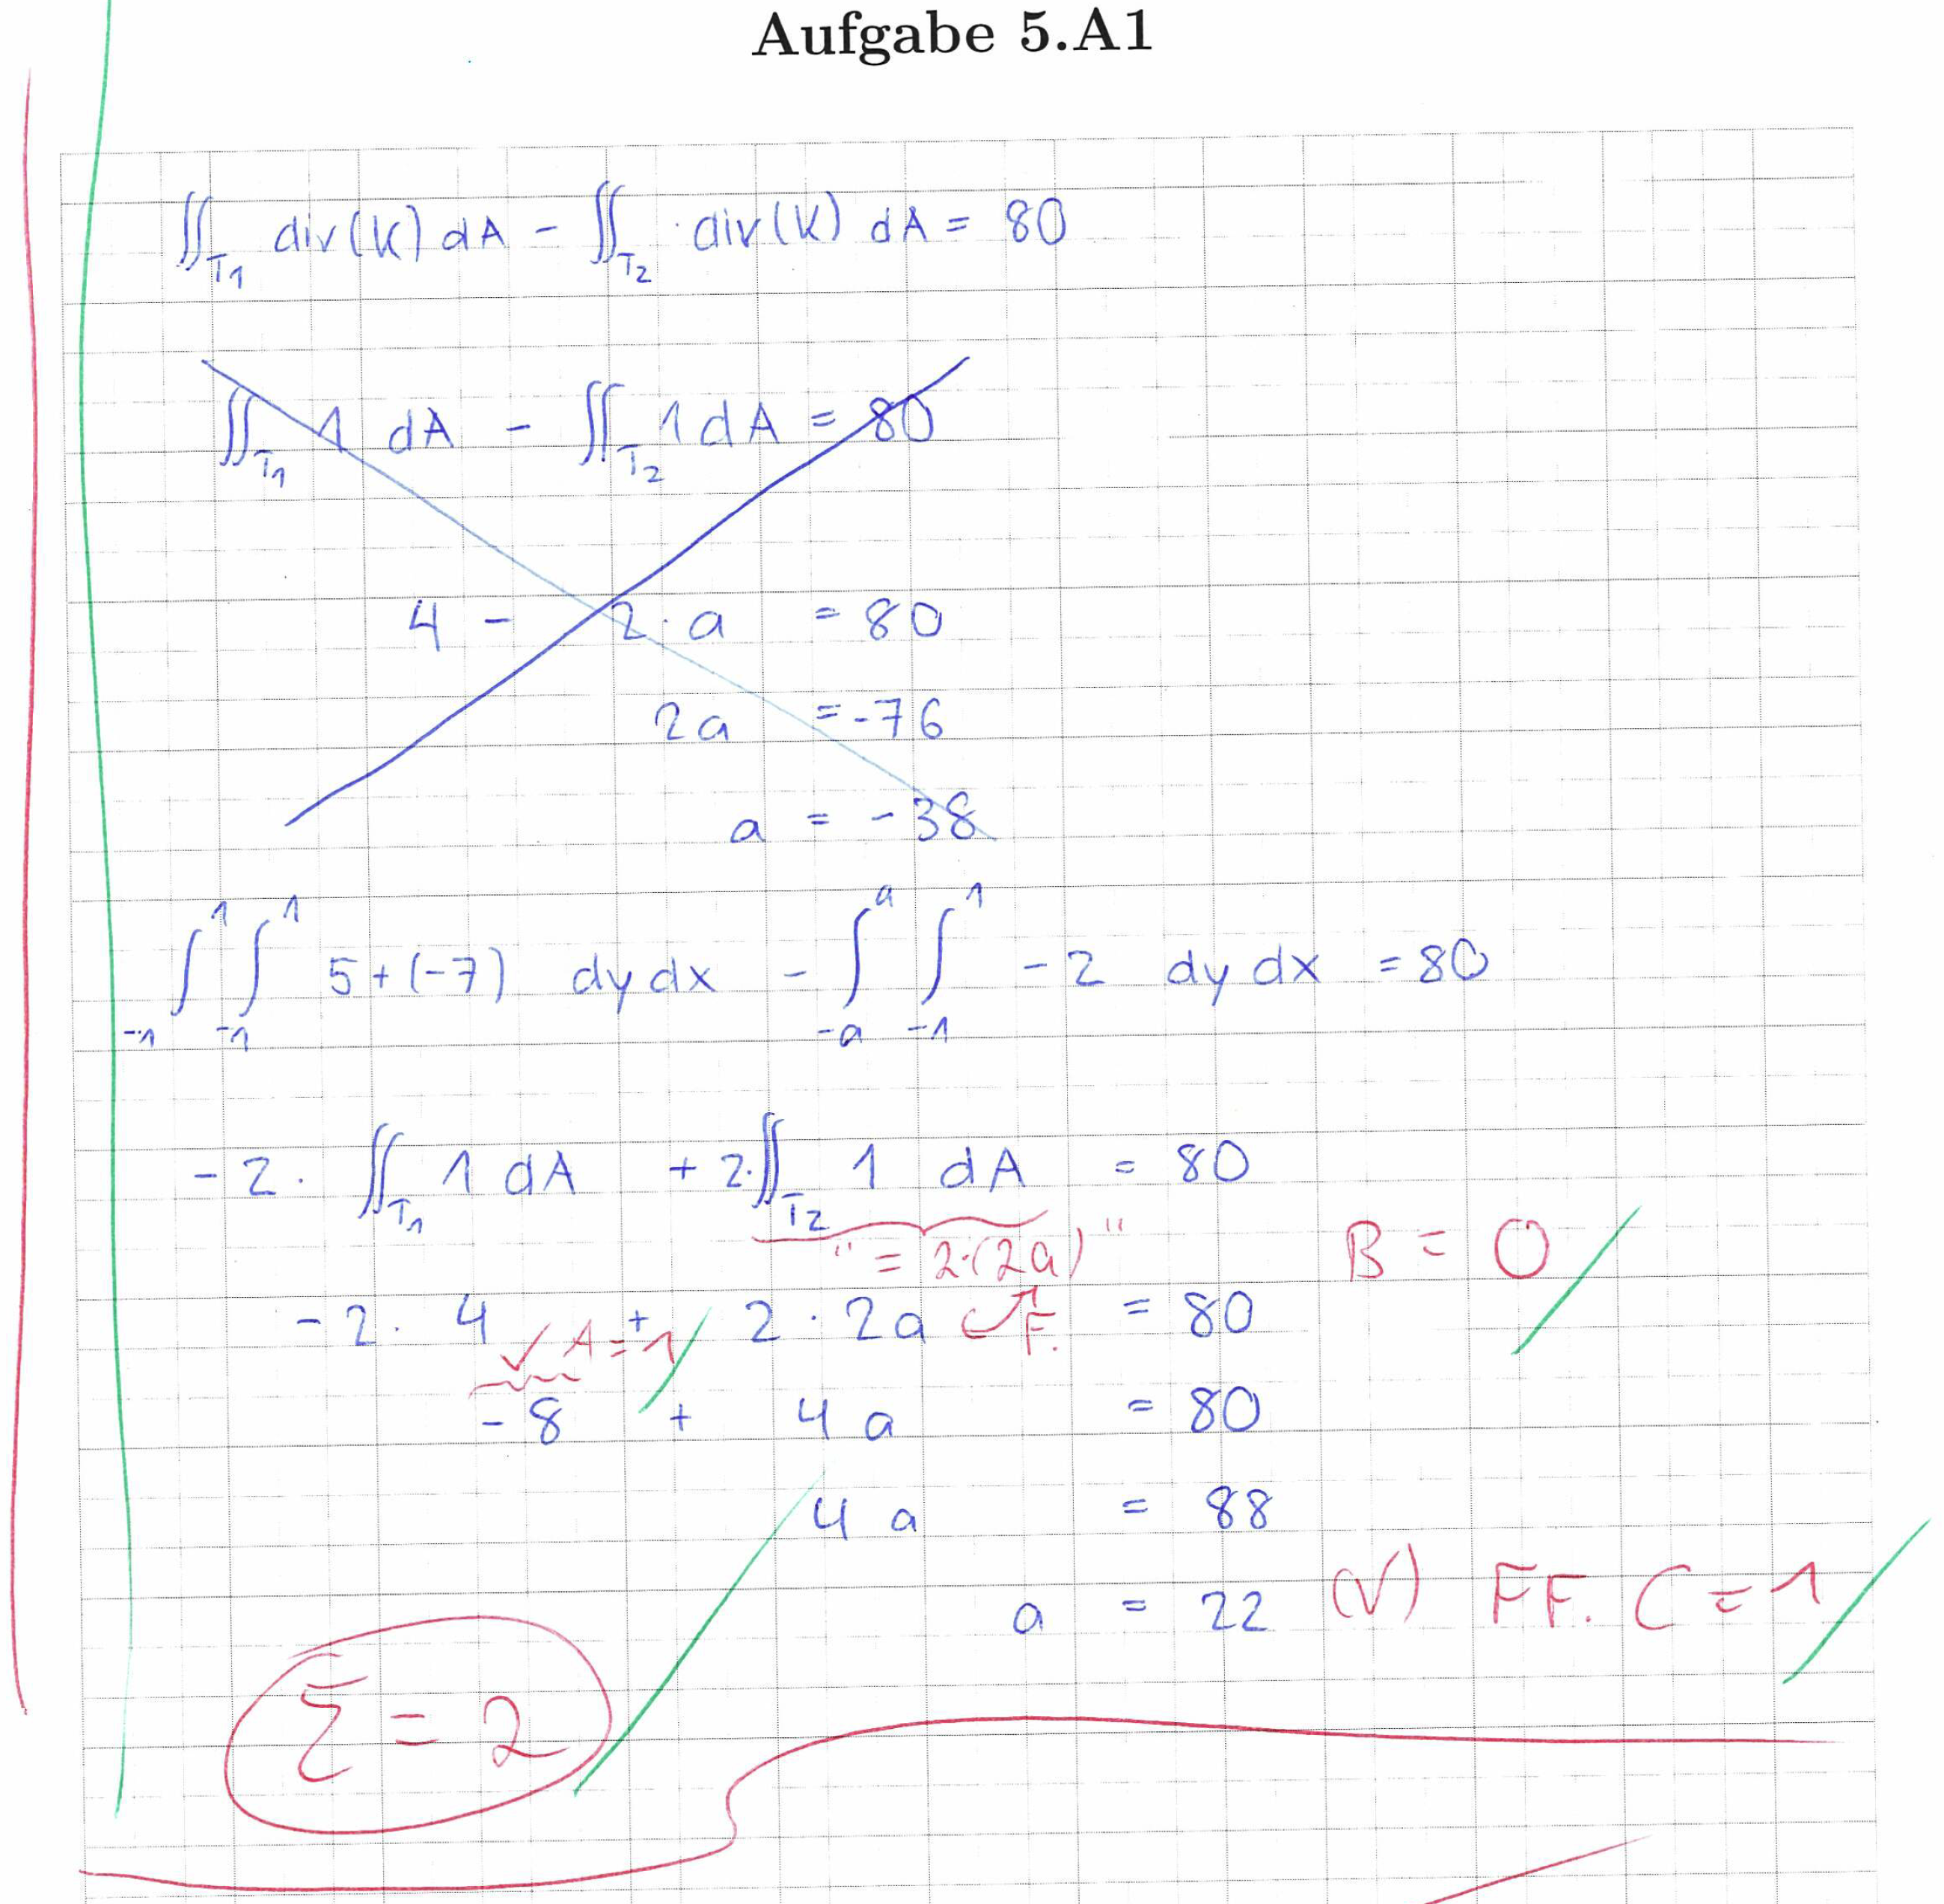 Aufgabe 5.A1
∬_{T_1} div(K) dA - ∬_{T_2} · div(K) dA = 80
∬_{T_1} 1 dA - ∬_{T_2} 1 dA = 80
4 - 2 · a = 80
2a = -76
a = -38
∫_{-1}^{1} ∫_{-1}^{1} 5+(-7) dy dx - ∫_{-a}^{a} ∫_{-1}^{1} -2 dy dx = 80
-2 · ∬_{T_1} 1 dA + 2 · ∬_{T_2} 1 dA = 80
" = 2·(2a) " B = 0
-2 · 4 + 2 · 2a F. = 80
✓ A = 1
-8 + 4a = 80
4a = 88
a = 22 (✓) FF. C = 1
Σ = 2